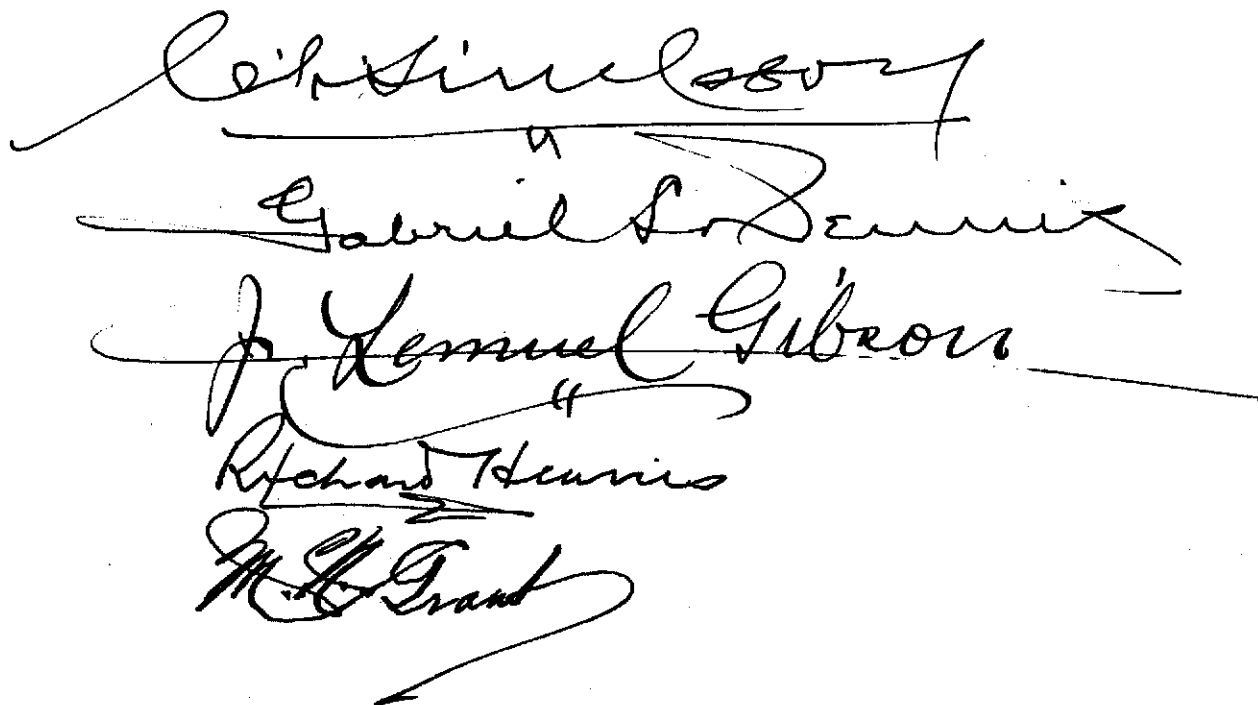 C. L. Simpson
Gabriel L. Dennis
J. Lemuel Gibson
Richard Henries
M. N. Grant